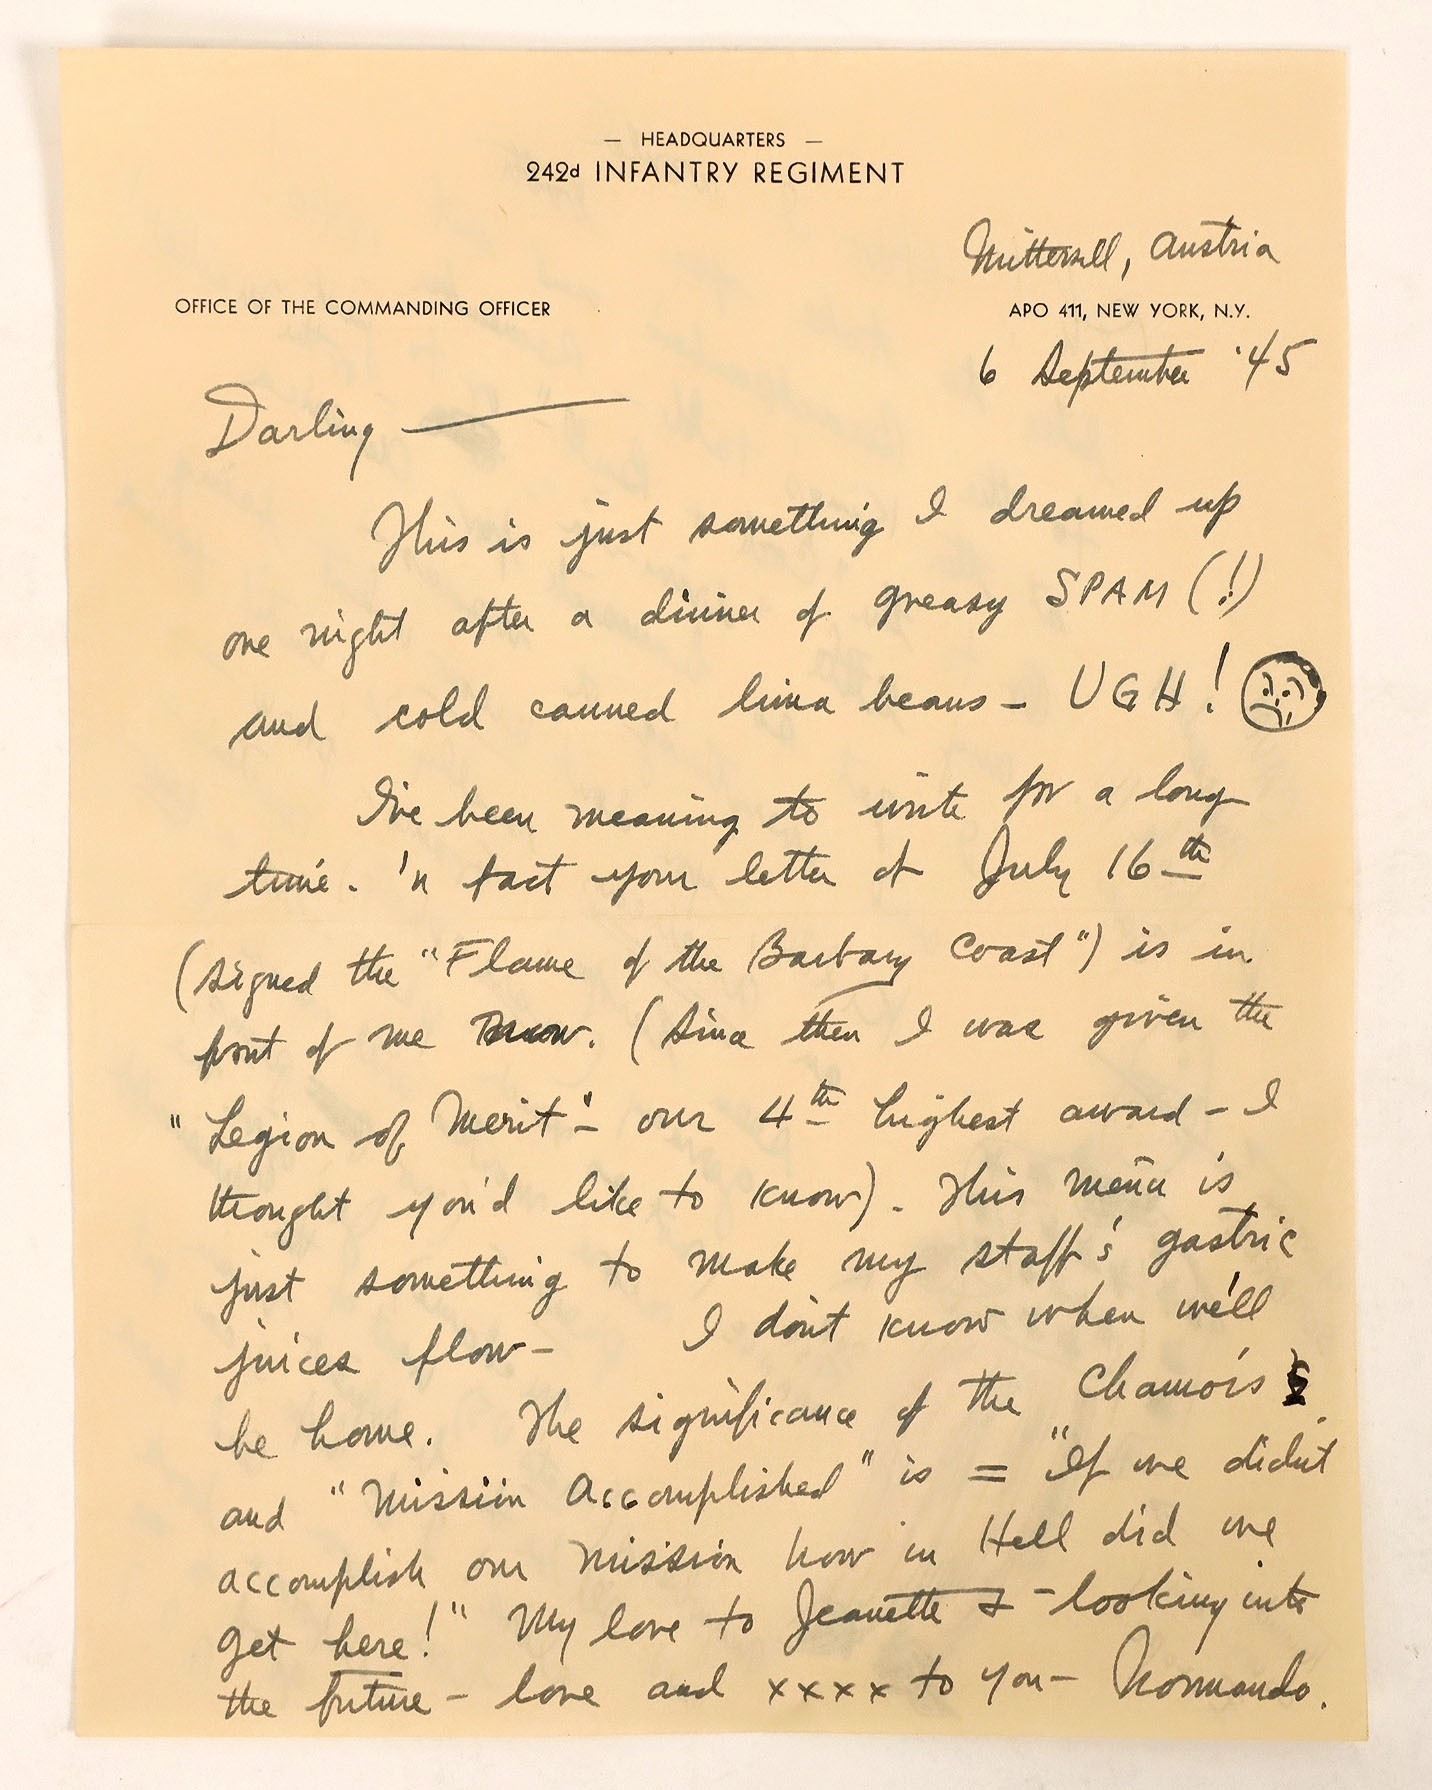 — HEADQUARTERS —
242d INFANTRY REGIMENT
Mittersill, Austria
OFFICE OF THE COMMANDING OFFICER
APO 411, NEW YORK, N.Y.
6 September '45
Darling —
This is just something I dreamed up
one night after a dinner of greasy SPAM (!)
and cold canned lima beans – UGH!
I've been meaning to write for a long
time. 'n fact your letter of July 16th
(signed the "Flame of the Barbary Coast") is in
front of me now. (Since then I was given the
"Legion of Merit" – our 4th highest award – I
thought you'd like to know). This menu is
just something to make my staff's gastric
juices flow – I don't know when we'll
be home. The significance of the Chamois
and "Mission Accomplished" is = "If we didn't
accomplish our mission how in Hell did we
get here!" My love to Jeanette & – looking into
the future – love and xxxx to you – Normando.